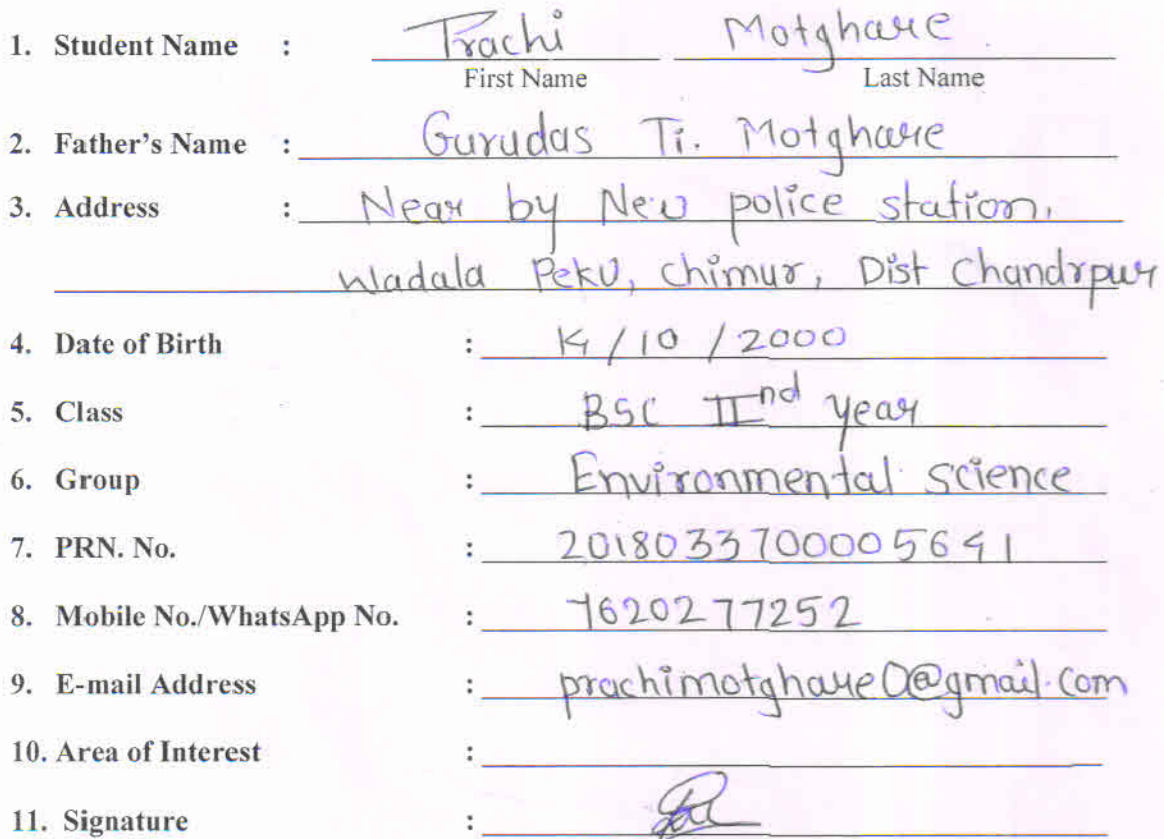 1. Student Name : Prachi Motghare
First Name Last Name
2. Father's Name : Gurudas Ti. Motghare
3. Address : Near by New police station,
Wadala Peku, chimur, Dist Chandrpur
4. Date of Birth : 14/10/2000
5. Class : BSC IInd year
6. Group : Environmental science
7. PRN. No. : 2018033700005641
8. Mobile No./WhatsApp No. : 7620277252
9. E-mail Address : prachimotghare0@gmail.com
10. Area of Interest :
11. Signature :